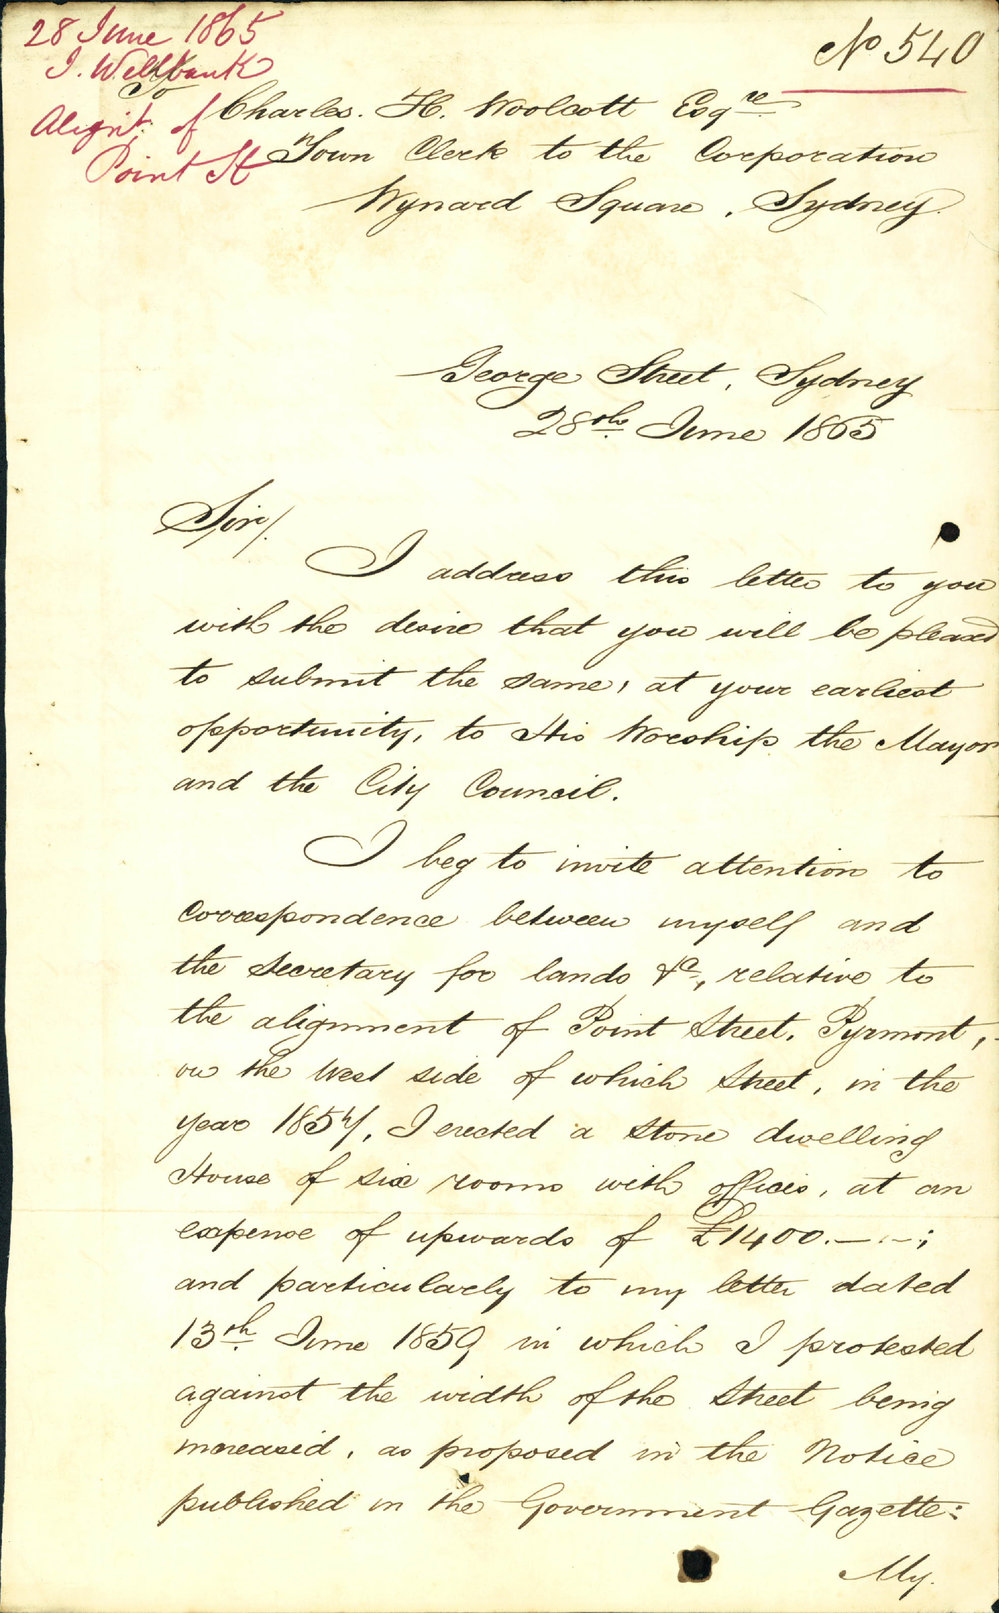 28 June 1865
J. Wellbank
Alignt. of
Point St
No 540
To
Charles. H. Woolcott Esqre
Town Clerk to the Corporation
Wynard Square, Sydney.
George Street, Sydney
28th June 1865
Sir/.
I address this letter to you
with the desire that you will be pleased
to submit the same, at your earliest
opportunity, to His Worship the Mayor
and the City Council.
I beg to invite attention to
correspondence between myself and
the Secretary for lands &c, relative to
the alignment of Point Street. Pyrmont,
on the West side of which Street, in the
year 1857, I erected a stone dwelling
House of six rooms with offices, at an
expense of upwards of £1400.—.—;
and particularly to my letter dated
13th June 1859 in which I protested
against the width of the Street being
increased, as proposed in the Notice
published in the Government Gazette:
My.